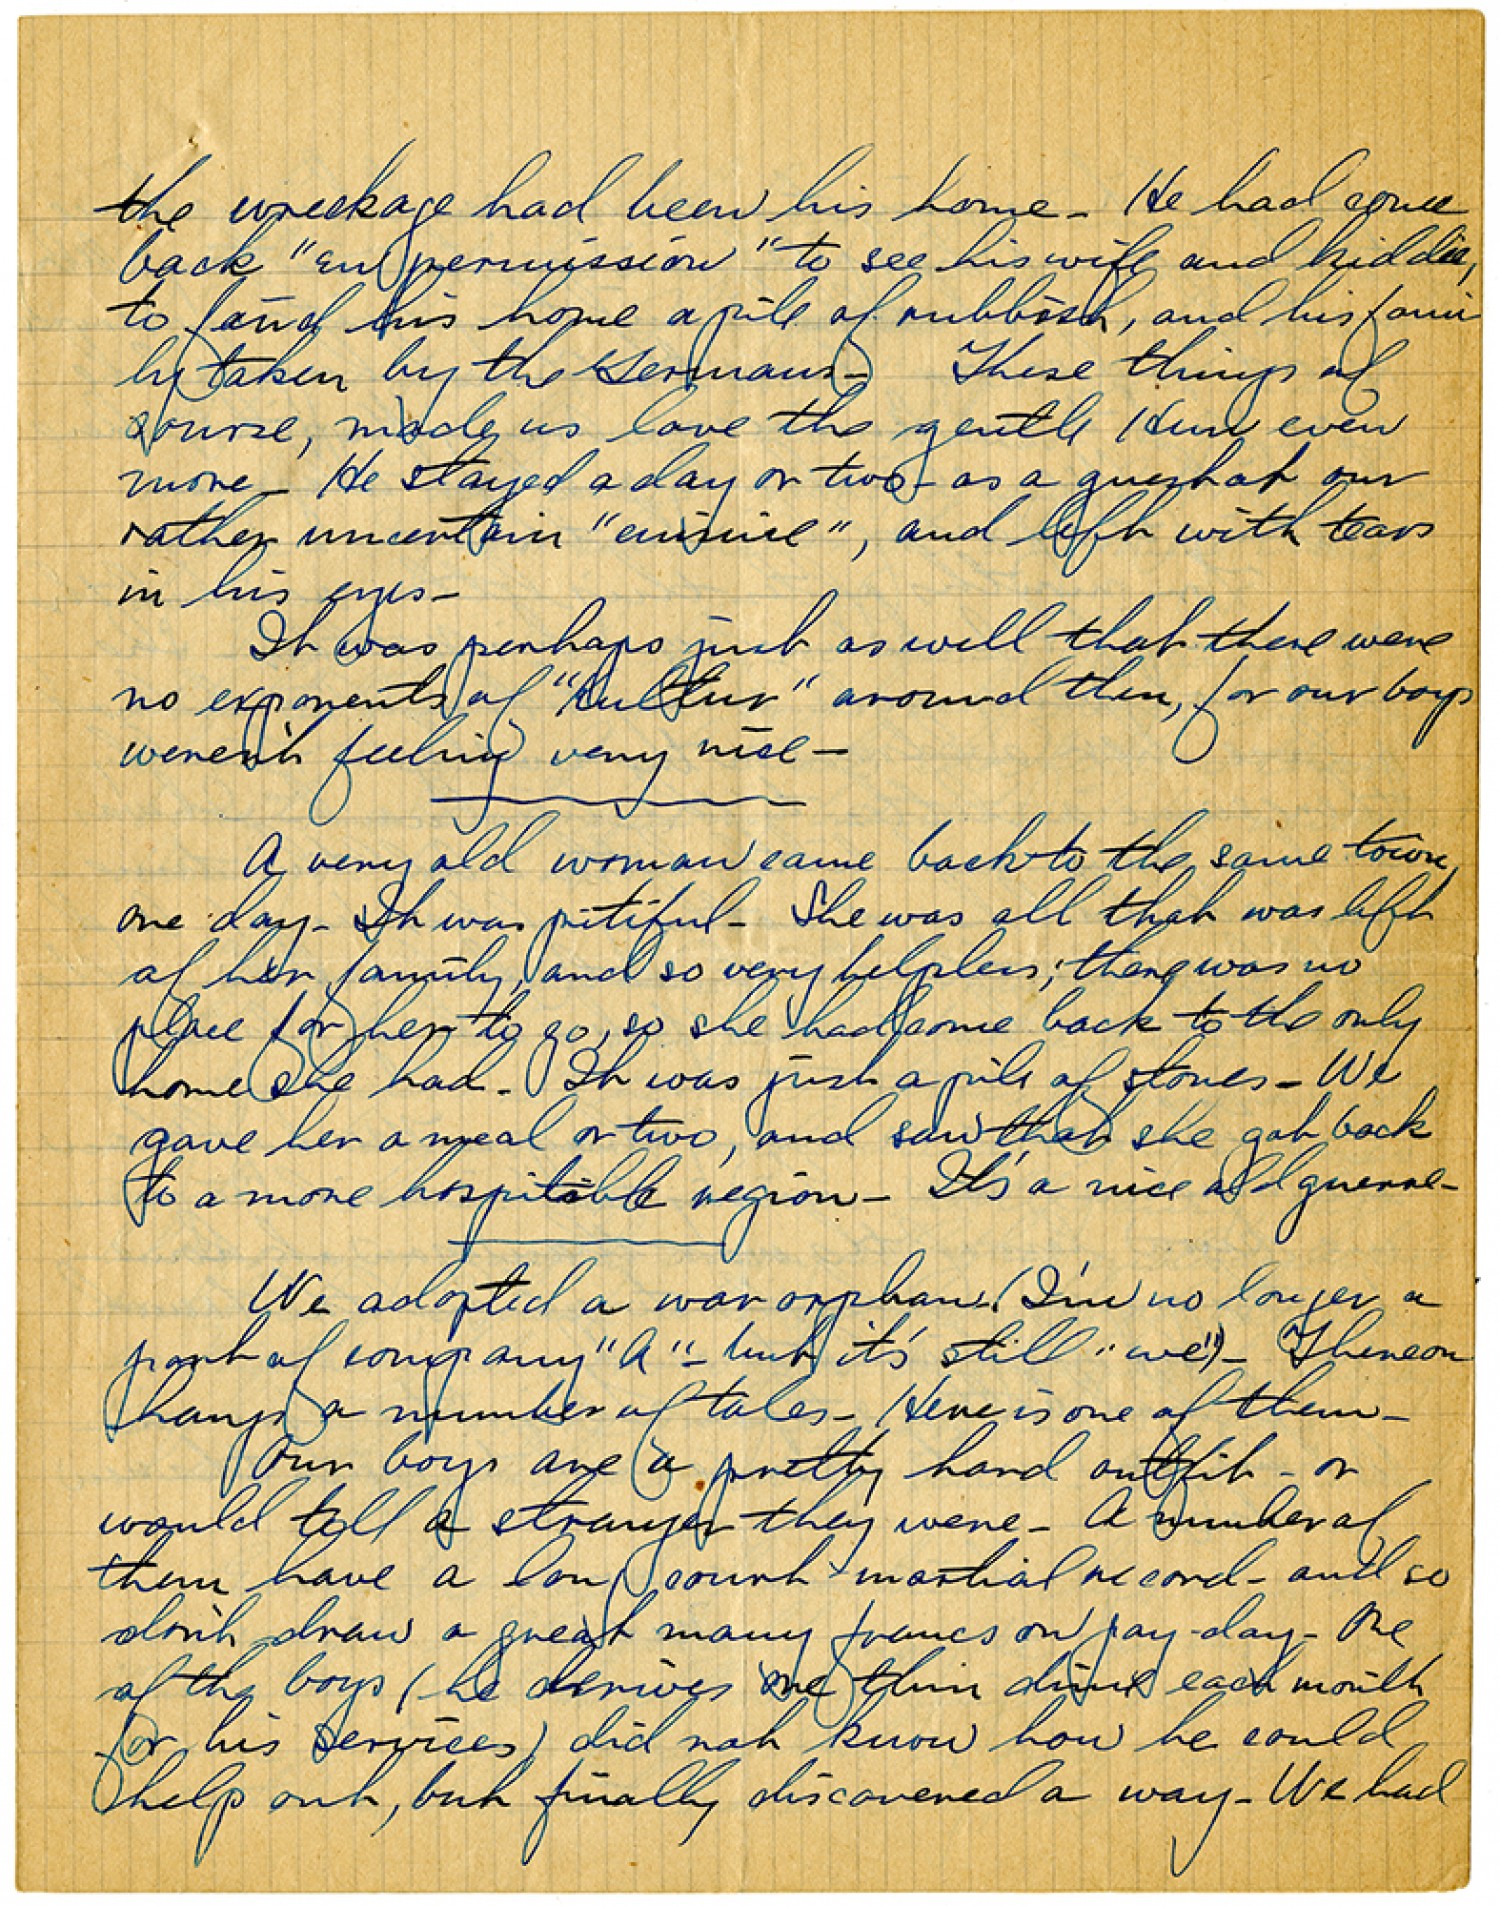 the wreckage had been his home - He had come
back "en permission" to see his wife and kiddies,
to find his home a pile of rubbish, and his fami
ly taken by the Germans - These things of
course, made us love the gentle Hun even
more - He stayed a day or two - as a guest at our
rather uncertain "cuisine", and left with tears
in his eyes -
It was perhaps just as well that there were
no exponents of "Kultur" around then, for our boys
weren't feeling very nice -
A very old woman came back to the same town,
one day - It was pitiful - She was all that was left
of her family, and so very helpless; there was no
place for her to go, so she had come back to the only
home she had - It was just a pile of stones - We
gave her a meal or two, and saw that she got back
to a more hospitable region - It's a nice old guerre -
We adopted a war orphan. (I'm no longer a
part of company "A" - but it's still "we") - Thereon
hangs a number of tales - Here is one of them -
Our boys are a pretty hard outfit - or
would tell a stranger they were - A number of
them have a long court-martial record - and so
don't draw a great many francs on pay-day - One
of the boys (he derives one thin dime each month
for his services) did not know how he could
help out, but finally discovered a way - We had